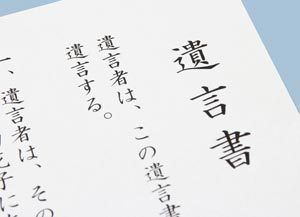 遺言書
遺言者は、この遺言書
遺言する。
一、遺言者は、その
花子に